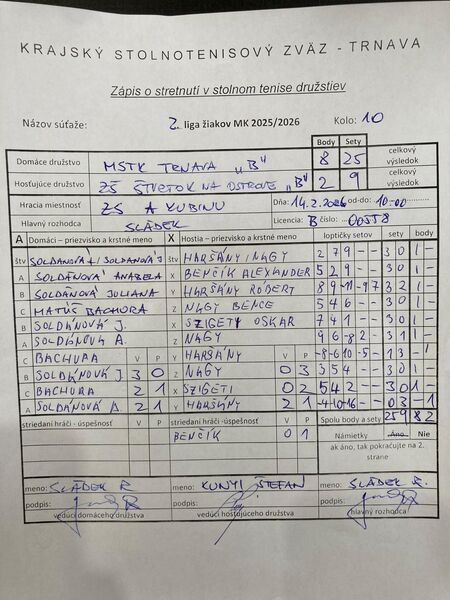 KRAJSKÝ STOLNOTENISOVÝ ZVÄZ - TRNAVA
Zápis o stretnutí v stolnom tenise družstiev
Názov súťaže: 2. liga žiakov MK 2025/2026 Kolo: 10
Body Sety
Domáce družstvo MSTK TRNAVA "B" 8 25 celkový výsledok
Hosťujúce družstvo ZŠ ŠTVRTOK NA OSTROVE "B" 2 9 celkový výsledok
Hracia miestnosť ZS A KUBINU Dňa: 14.2.2026 od-do: 10-00
Hlavný rozhodca SLÁDEK Licencia: B číslo: 00558
A Domáci – priezvisko a krstné meno X Hostia – priezvisko a krstné meno loptičky setov sety body
štv SOLDÁNOVÁ A / SOLDÁNOVÁ J štv HARŠÁNY / NAGY 2 7 9 - - 3 0 1 -
A SOLDÁNOVÁ ANABELA X BENČÍK ALEXANDER 5 2 9 - - 3 0 1 -
B SOLDÁNOVÁ JULIANA Y HARŠÁNY RÓBERT 8 9 -11 -9 7 3 2 1 -
C MATÚŠ BACHURA Z NAGY BENCE 5 4 6 - - 3 0 1 -
B SOLDÁNOVÁ J. X SZIGETY OSKAR 7 4 1 - - 3 0 1 -
A SOLDÁNOVÁ A. Z NAGY 9 6 -8 2 - 3 1 1 -
C BACHURA V P Y HARŠÁNY V P -8 -6 10 -5 - 1 3 - 1
B SOLDÁNOVÁ J 3 0 Z NAGY 0 3 3 5 4 - - 3 0 1 -
C BACHURA 2 1 X SZIGETI 0 2 5 4 2 - - 3 0 1 -
A SOLDÁNOVÁ A. 2 1 Y HARŠÁNY 2 1 -4 -10 -16 - - 0 3 - 1
striedaní hráči - úspešnosť V P striedaní hráči - úspešnosť V P Spolu body a sety 25 9 8 2
BENČÍK 0 1 Námietky Áno Nie
ak áno, tak pokračujte na 2. strane
meno: SLÁDEK R meno: KUNYI ŠTEFAN meno: SLÁDEK R.
podpis: podpis: podpis:
vedúci domáceho družstva vedúci hosťujúceho družstva hlavný rozhodca